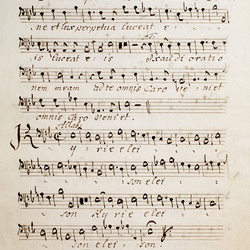 ne et lux perpetua luceat e
is luceat e is Exaudi oratio
nem meam ad te omnis Caro ve niet
omnis Caro veniet
Kyrie elei
son elei
son Kyrie elei
son elei son